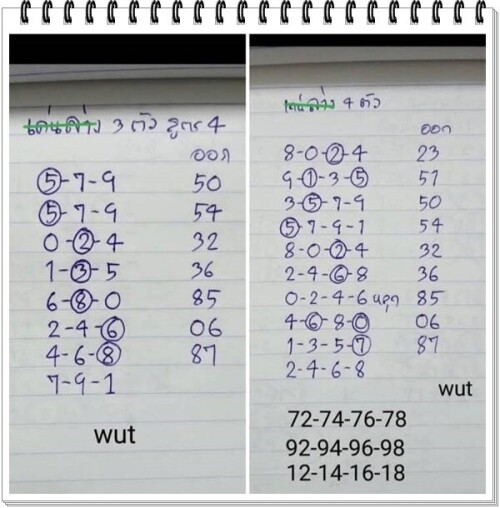 เด่นล่าง 3 ตัว สูตร 4
ออก
5-7-9 50
5-7-9 54
0-2-4 32
1-3-5 36
6-8-0 85
2-4-6 06
4-6-8 87
7-9-1
wut
เด่นล่าง 4 ตัว
ออก
8-0-2-4 23
9-1-3-5 51
3-5-7-9 50
5-7-9-1 54
8-0-2-4 32
2-4-6-8 36
0-2-4-6 หลุด 85
4-6-8-0 06
1-3-5-7 87
2-4-6-8
wut
72-74-76-78
92-94-96-98
12-14-16-18